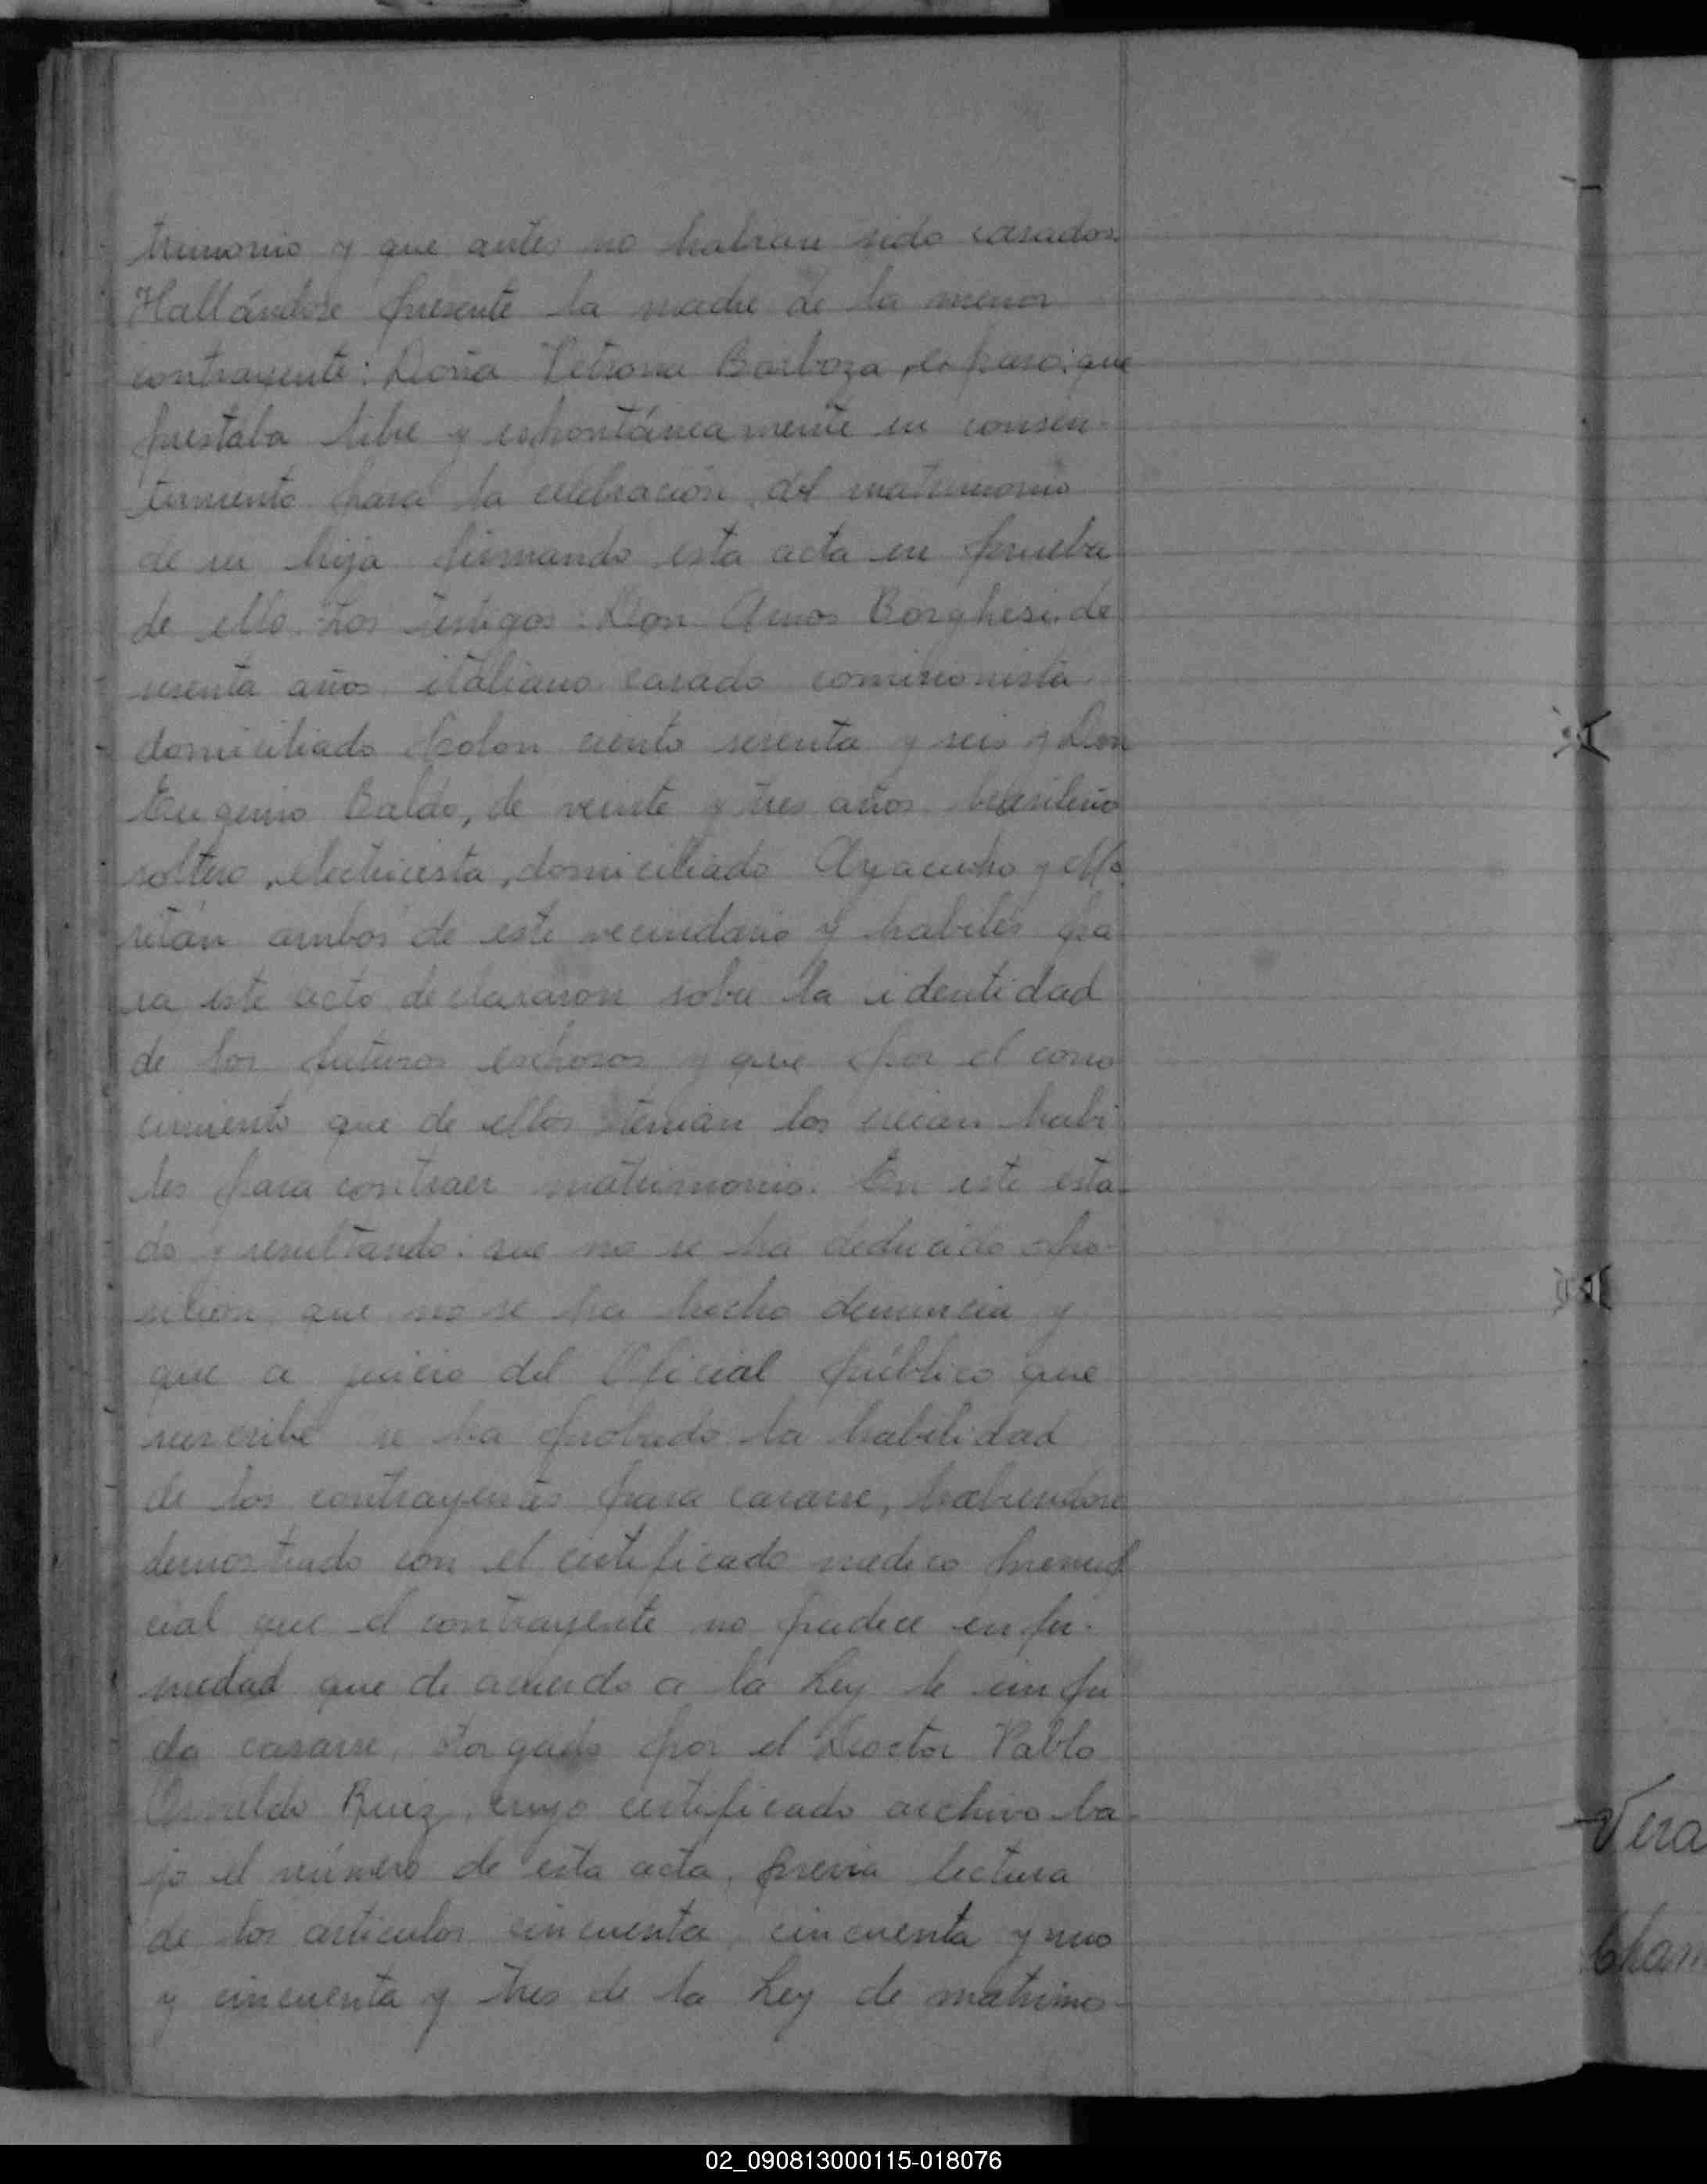 trimonio y que antes no habian sido casados.
Hallándose presente la madre de la menor
contrayente: Doña Petrona Barboza, expuso: que
prestaba libre y espontáneamente su consen-
timiento para la celebración del matrimonio
de su hija firmando esta acta en prueba
de ello. Los testigos: Don Amos Borghesi, de
sesenta años, italiano, casado comisionista
domiciliado Colon ciento sesenta y seis y Don
Eugenio Baldo, de veinte y tres años brasileño
soltero, electricista, domiciliado Ayacucho y
ambos de este vecindario y habiles pa
ra este acto declararon sobre la identidad
de los futuros esposos y que por el cono
cimiento que de ellos tenian los creian habi
les para contraer matrimonio. En este esta-
do y resultando: que no se ha deducido opo-
sición, que no se ha hecho denuncia y
que a juicio del Oficial público que
suscribe se ha probado la habilidad
de los contrayentes para casarse, habiendose
demostrado con el certificado medico prenup
cial que el contrayente no padece enfer-
medad que de acuerdo a la Ley le impi
da casarse, otorgado por el Doctor Pablo
Osvaldo Ruiz, cuyo certificado archivo ba-
jo el número de esta acta, previa lectura
de los articulos cincuenta, cincuenta y uno
y cincuenta y tres de la Ley de matrimo-
Vera
02_090813000115-018076